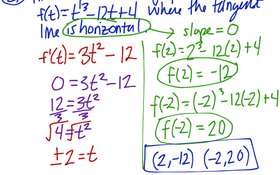 f(t)=t³-12t+4 Where the tangent
line is horizontal → slope=0
f'(t)=3t²-12
0=3t²-12
12=3t²
3 3
√4=t²
±2=t
f(2)=2³-12(2)+4
f(2)=-12
f(-2)=(-2)³-12(-2)+4
f(-2)=20
(2,-12) (-2,20)